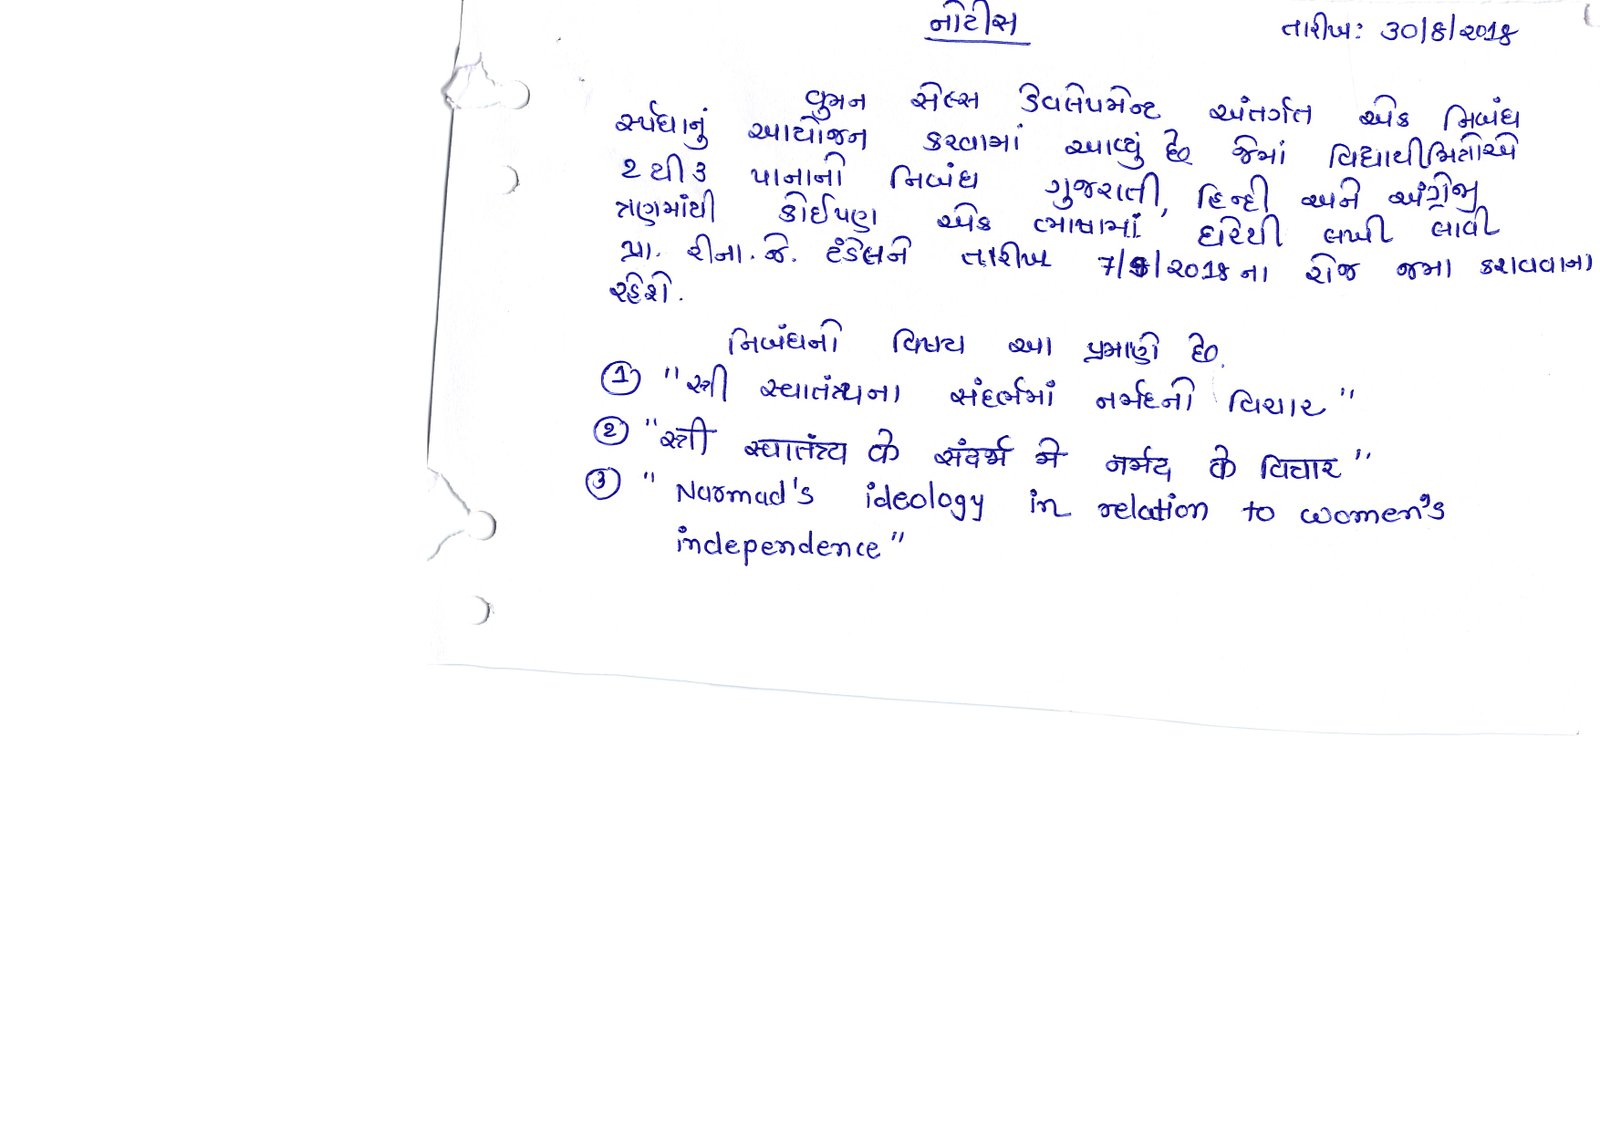 નોટીસ
તારીખ: ૩૦/૮/૨૦૧૮
વુમન સેલ્સ ડેવલેપમેન્ટ અંતર્ગત એક નિબંધ
સ્પર્ધાનું આયોજન કરવામાં આવ્યું છે જેમાં વિદ્યાર્થીમિત્રોએ
૨ થી ૩ પાનાનો નિબંધ ગુજરાતી, હિન્દી અને અંગ્રેજી
ત્રણમાંથી કોઈપણ એક ભાષામાં ઘરેથી લખી લાવી
પ્રા. રીના.જે. ટંડેલને તારીખ 7/9/૨૦૧૮ ના રોજ જમા કરાવવાના
રહેશે.
નિબંધનો વિષય આ પ્રમાણે છે.
① "સ્ત્રી સ્વાતંત્ર્યના સંદર્ભમાં નર્મદનો વિચાર"
② "स्त्री स्वातंत्र्य के संदर्भ मे नर्मद के विचार"
③ "Narmad's ideology in relation to women's
independence"